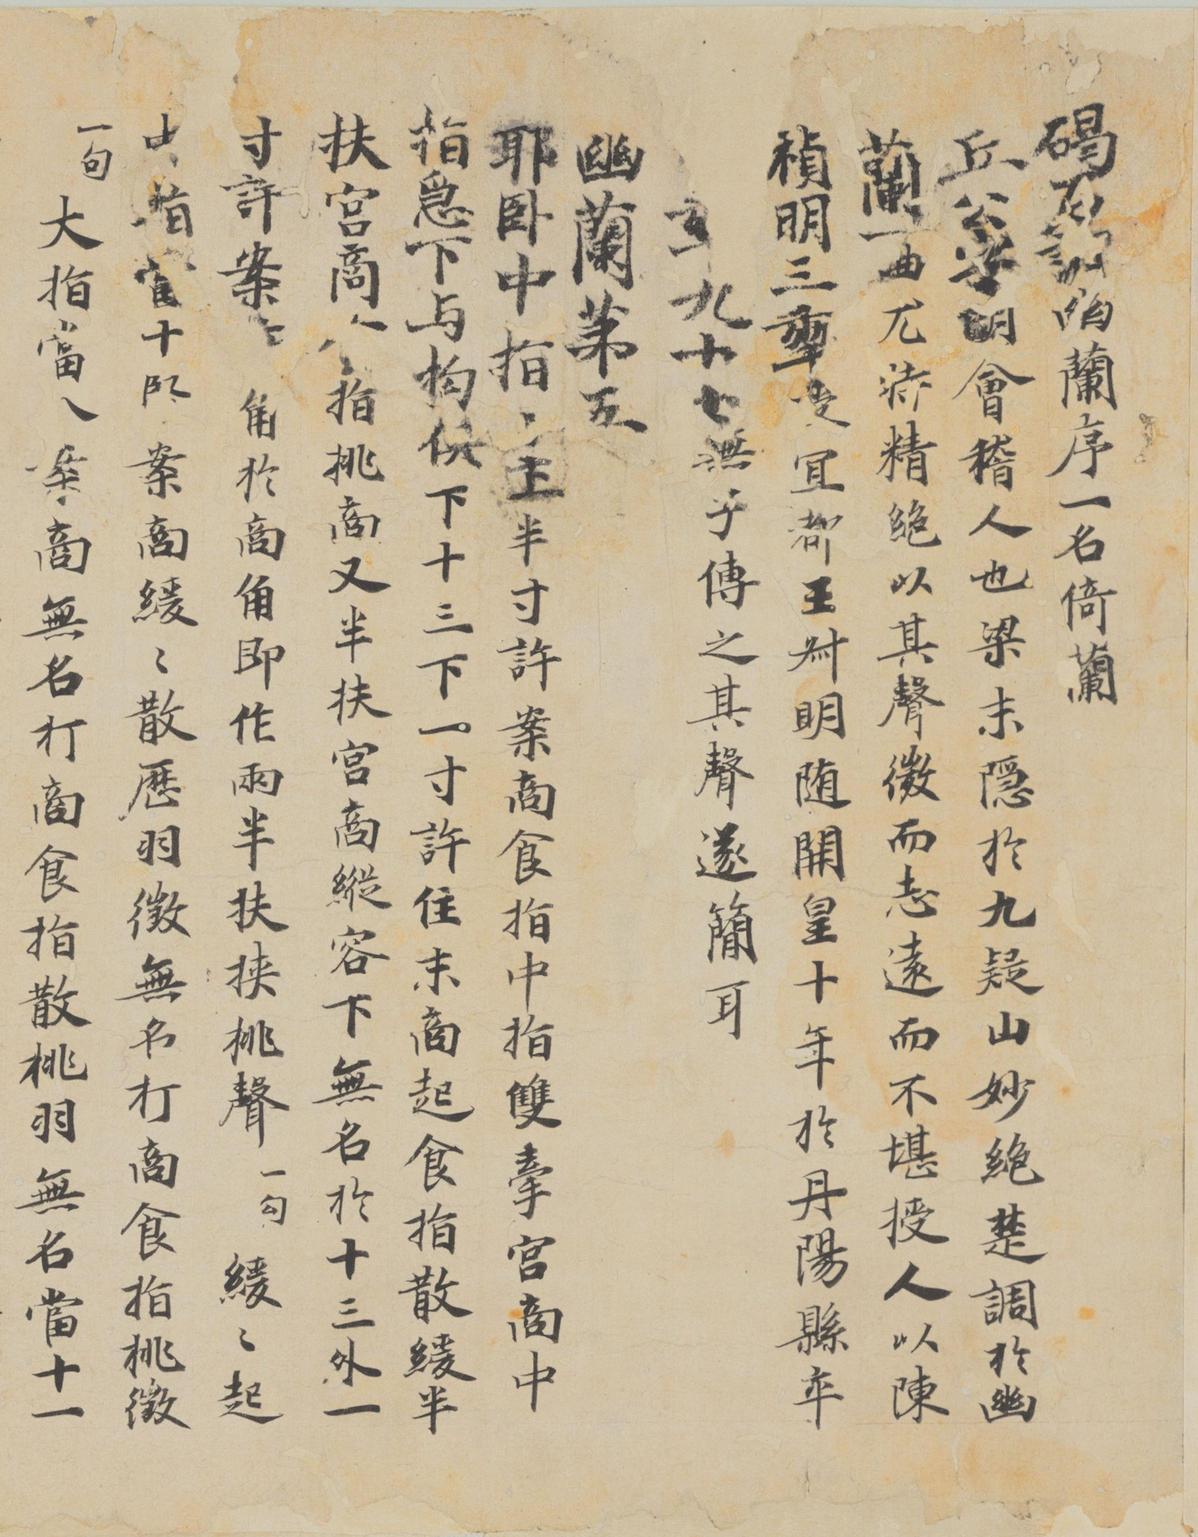 碣石調幽蘭序一名倚蘭
丘公字明會稽人也梁末隱於九疑山妙絕楚調於幽
蘭一曲尤特精絕以其聲微而志遠而不堪授人以陳
禎明三年授宜都王叔明随開皇十年於丹陽縣卒
九十七無子傳之其聲遂簡耳
幽蘭第五
耶臥中指上半寸許案商食指中指雙牽宮商中
指急下与拘俱下十三下一寸許住末商起食指散緩半
扶宮商食指挑商又半扶宮商縱容下無名於十三外一
寸許案商角於商角即作兩半扶挟挑聲一句緩〻起
中指當十案商緩〻散歷羽徵無名打商食指挑徵
一句大指當八案商無名打商食指散挑羽無名當十一